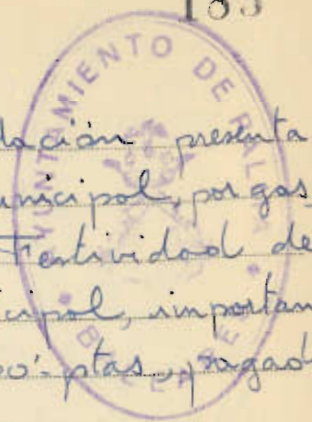 185
AYUNTAMIENTO DE
lación presenta
unicipal, por gas
Festividad de
cipal, importan
00'- ptas, pagad